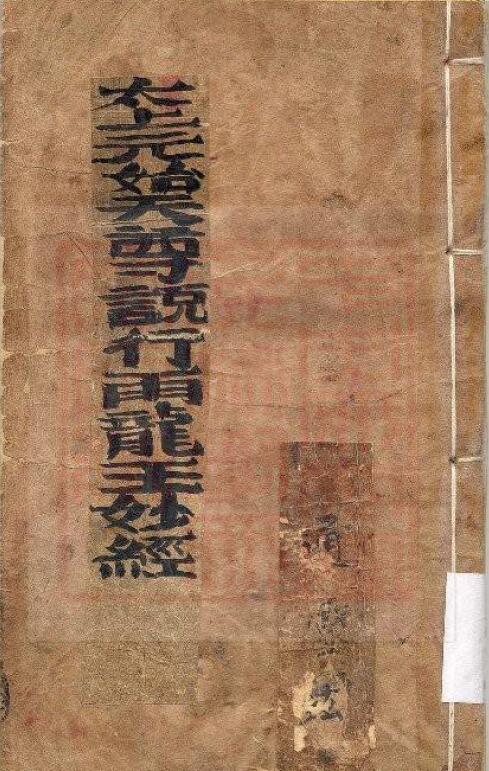 太上元始天尊說行雨龍王妙經